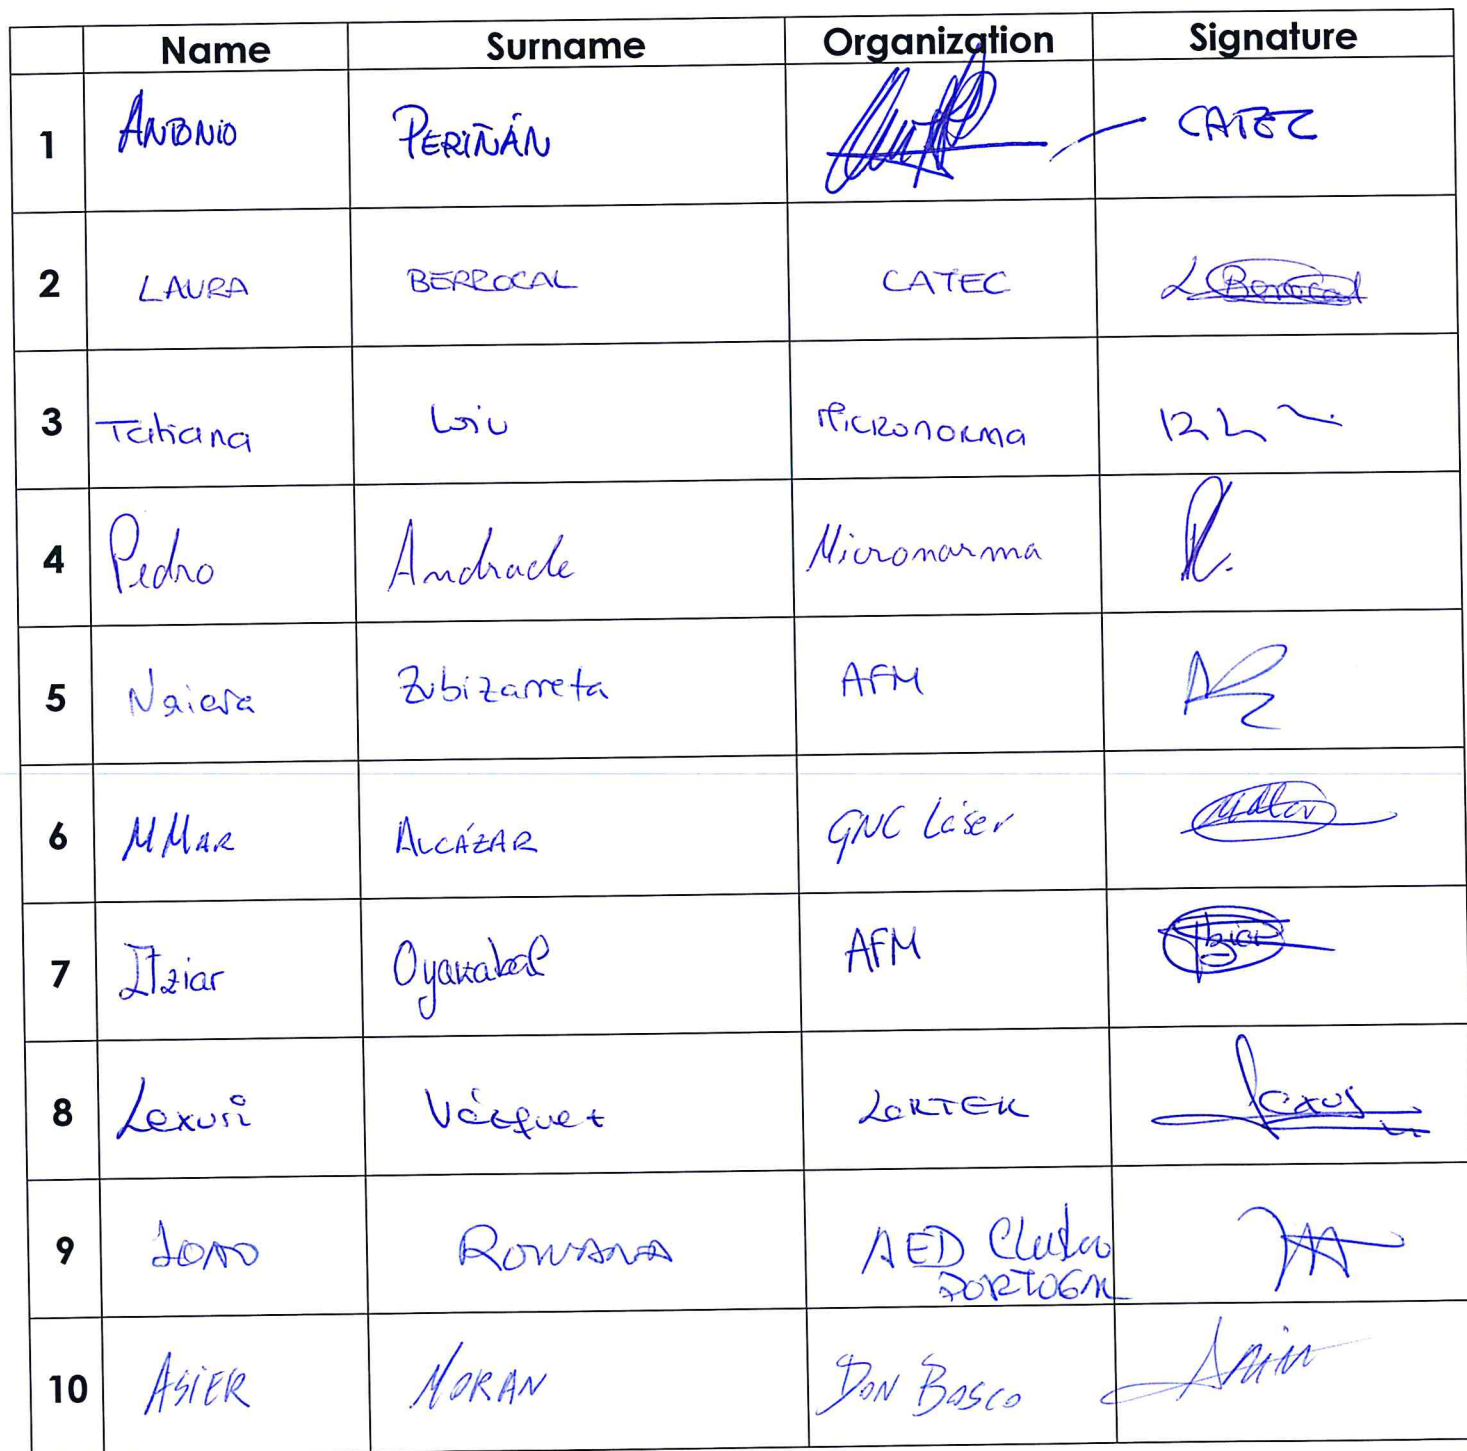 Name Surname Organization Signature
1 ANTONIO PERIÑÁN CATEC
2 LAURA BERROCAL CATEC L Berrocal
3 Tatiana MICRONORMA
4 Pedro Andrade Micronorma
5 Naiara Zubizarreta AFM
6 MMAR ALCÁZAR GNC Láser
7 Itziar Oyarzabal AFM
8 Lexuri Vázquez LORTEK
9 JOAO ROMANA AED Cluster
PORTUGAL
10 ASIER MORAN DON BOSCO